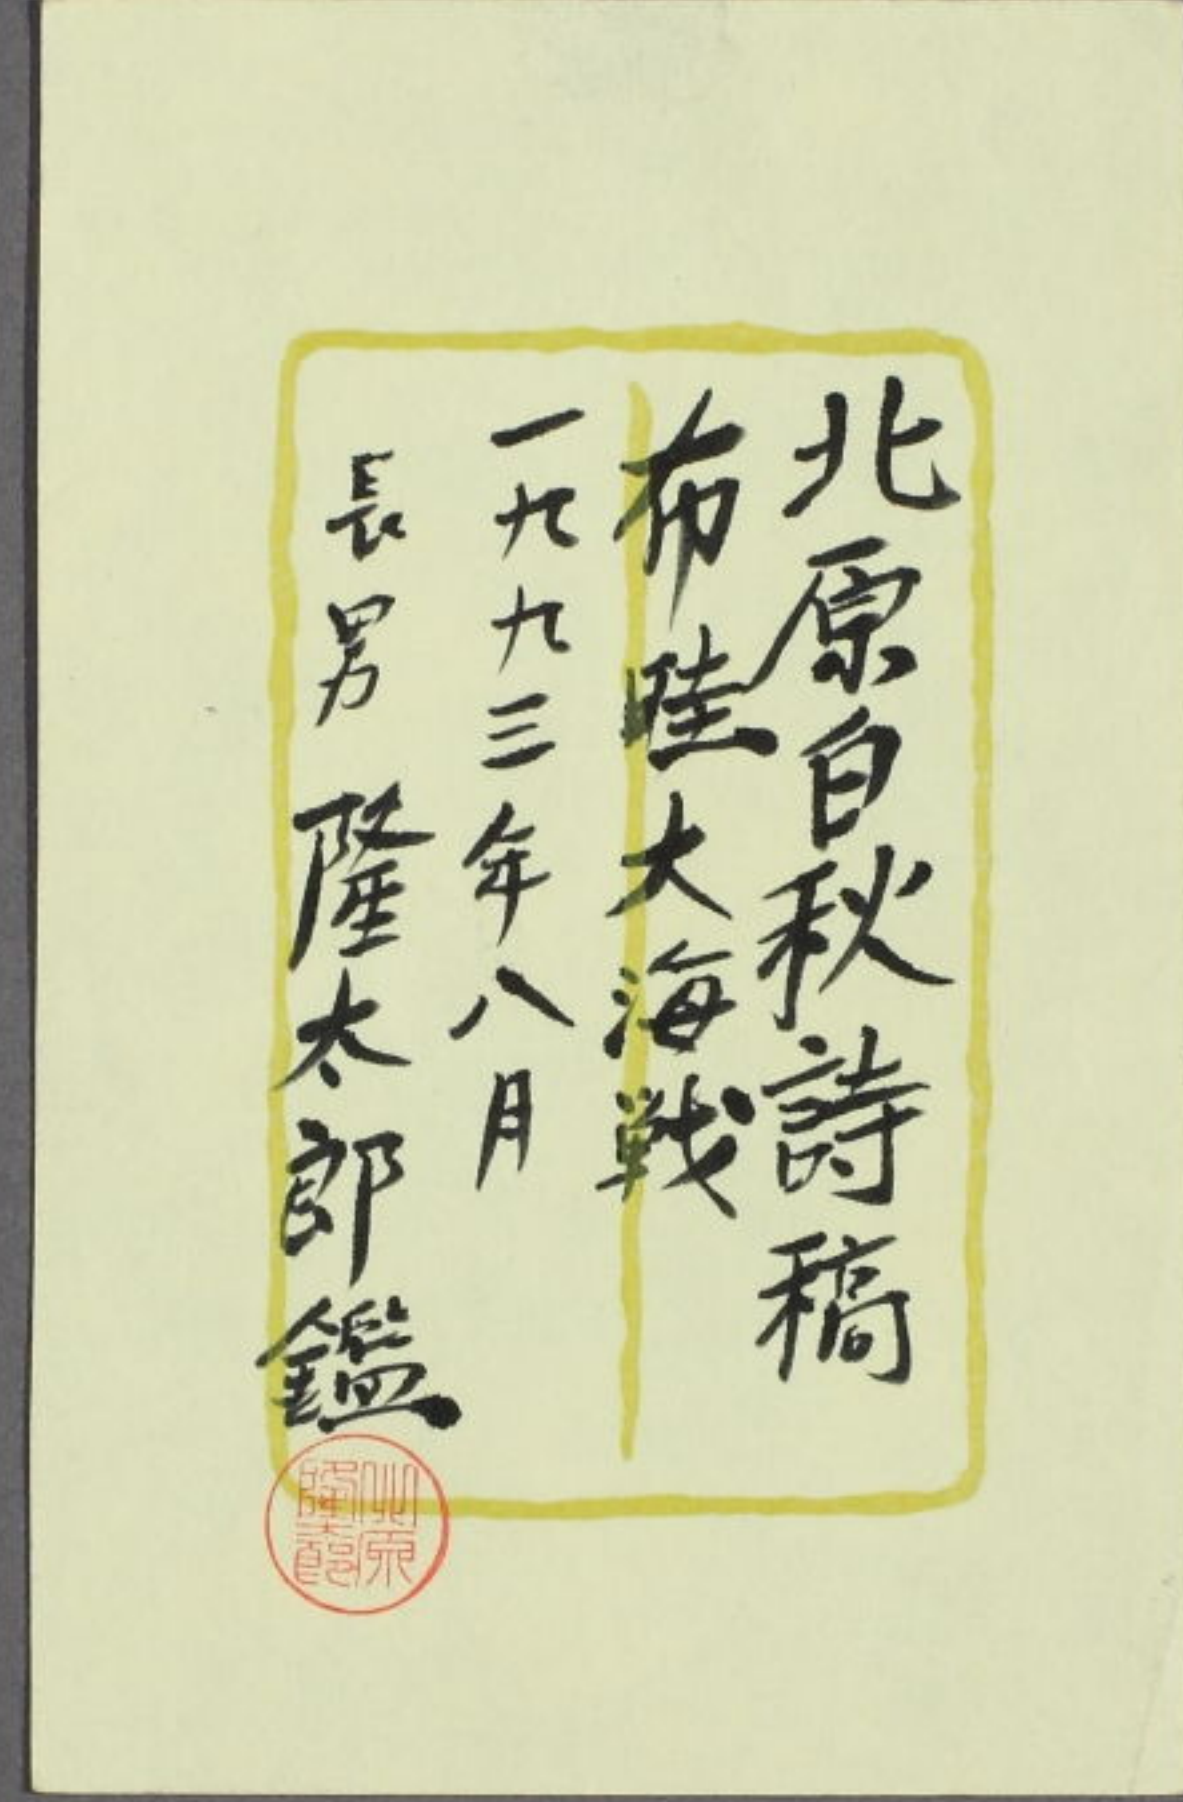 北原白秋詩稿
布哇大海戦
一九九三年八月
長男 隆太郎鑑
北原
隆太郎